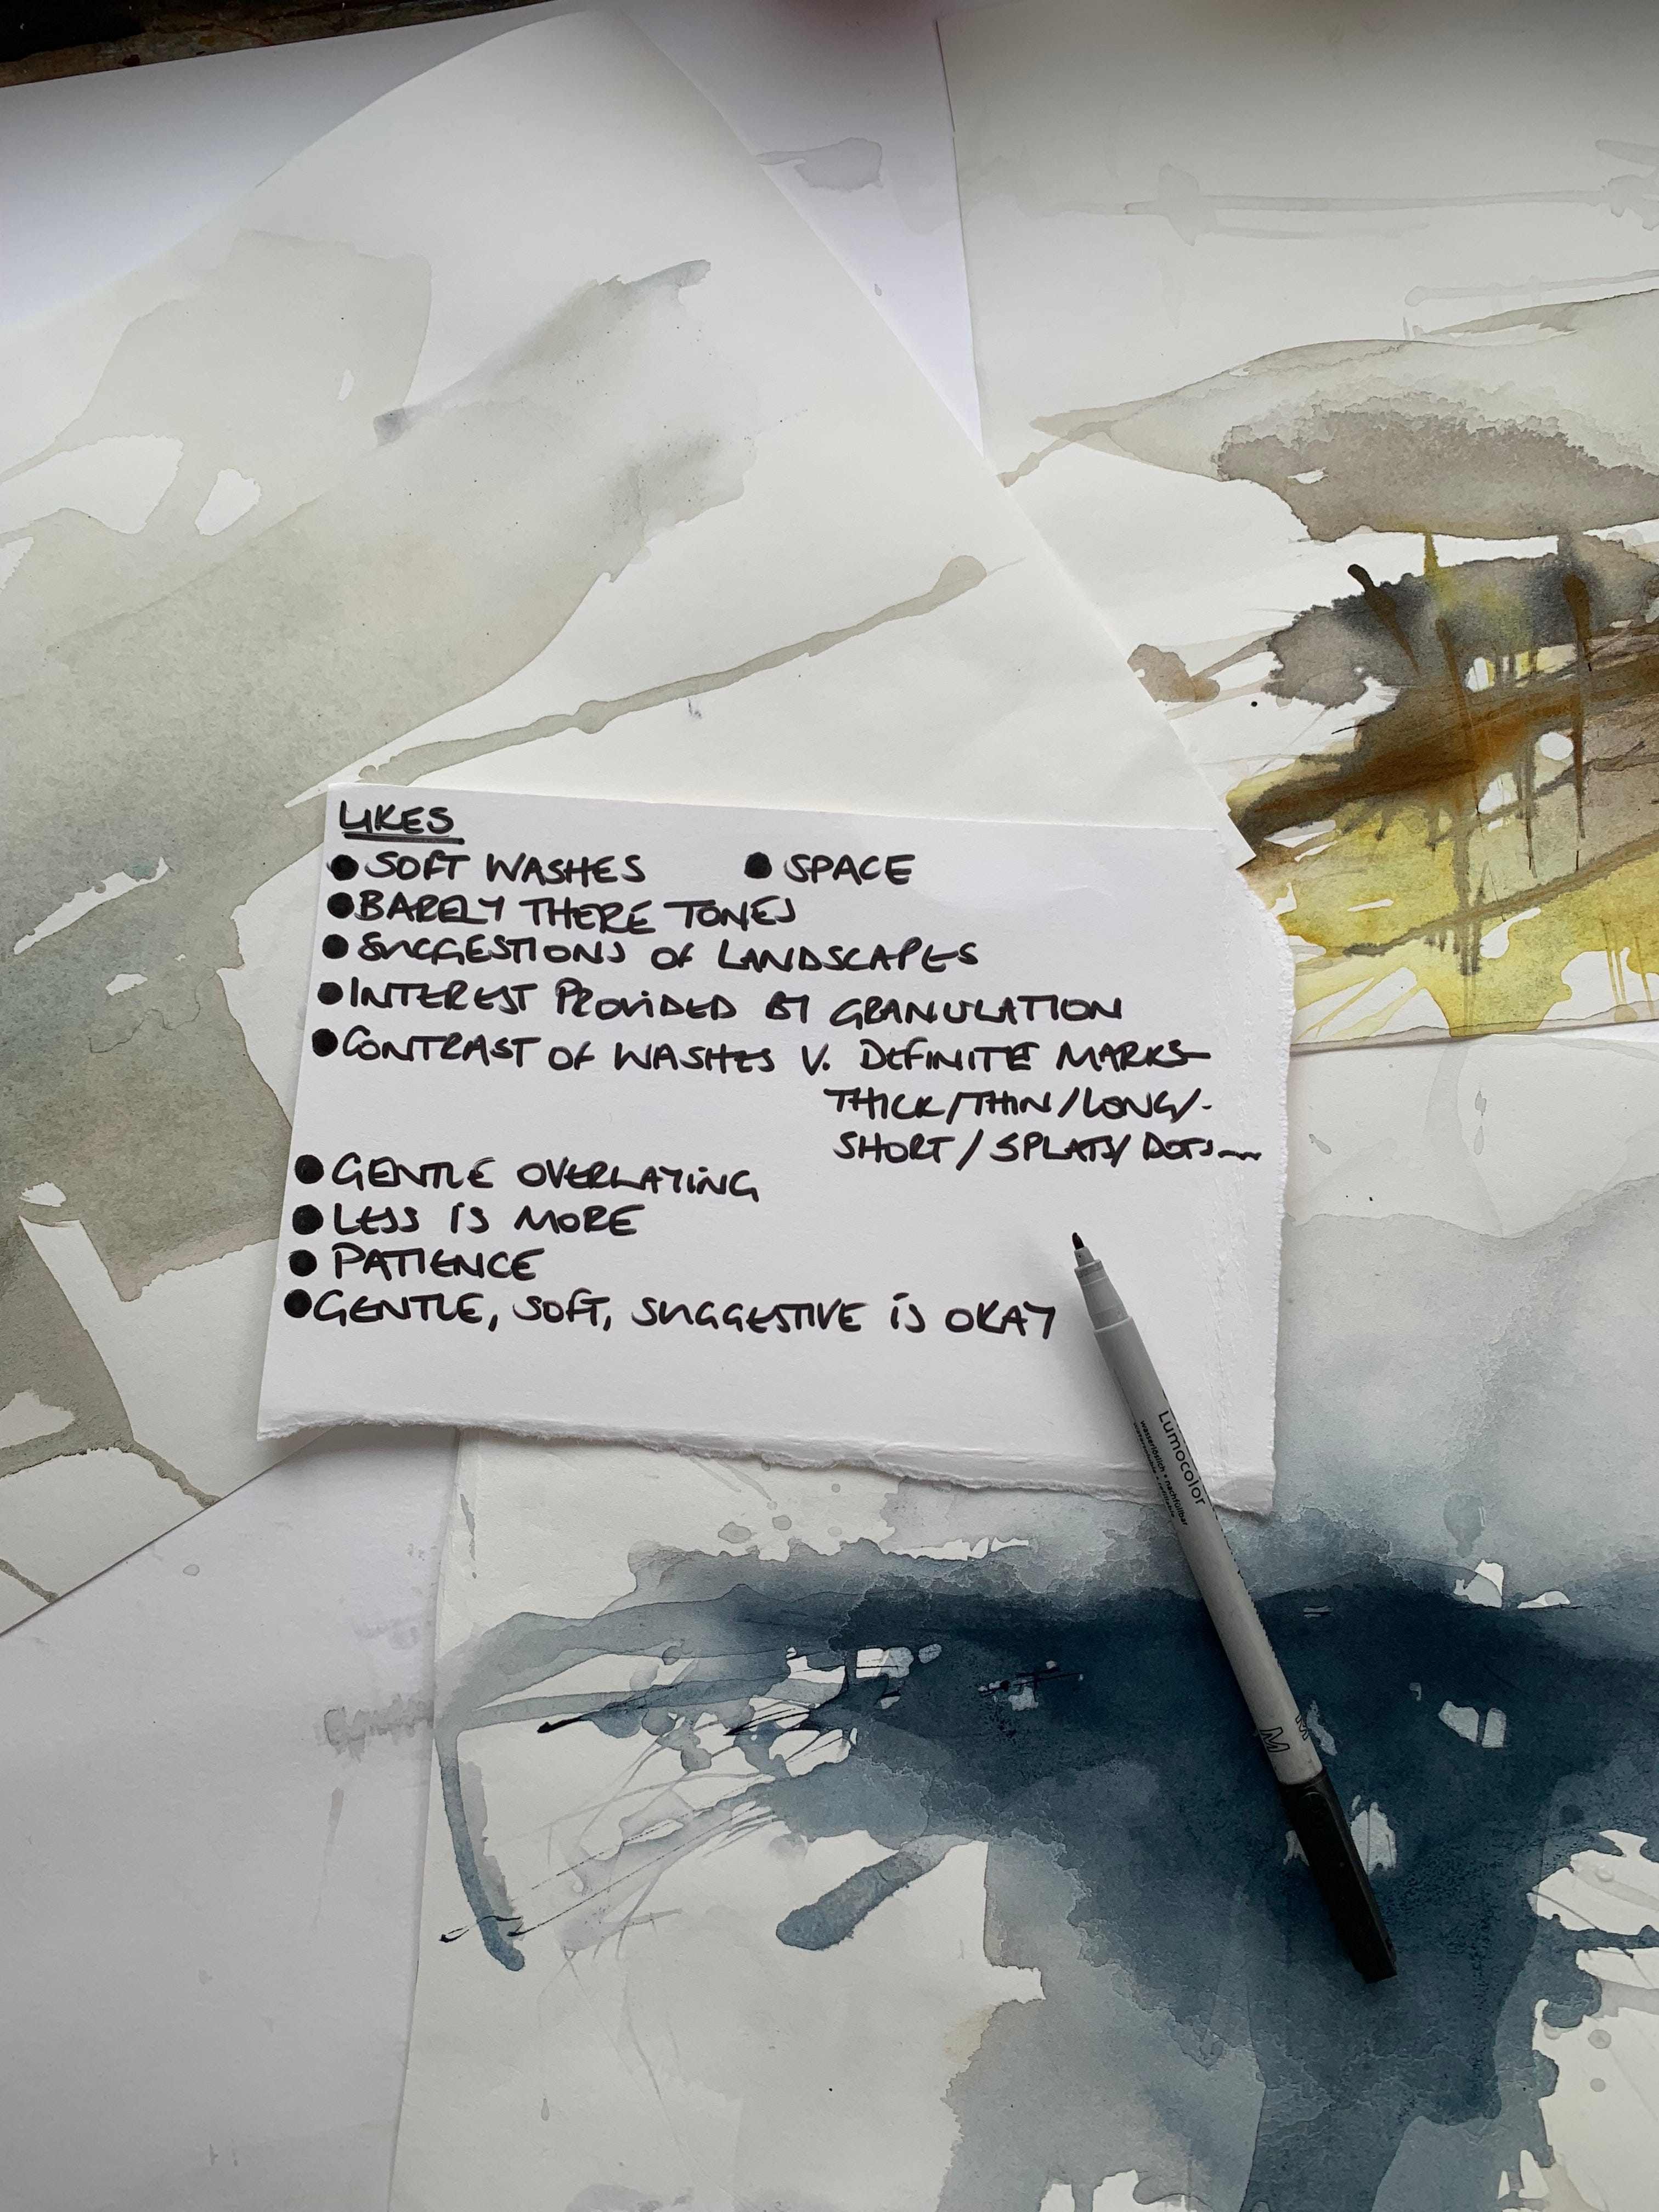 LIKES
● SOFT WASHES ● SPACE
● BARELY THERE TONES
● SUGGESTIONS OF LANDSCAPES
● INTEREST PROVIDED BY GRANULATION
● CONTRAST OF WASHES V. DEFINITE MARKS
THICK/THIN/LONG/.
SHORT/SPLATS/DOTS
● GENTLE OVERLAYING
● LESS IS MORE
● PATIENCE
● GENTLE, SOFT, SUGGESTIVE IS OKAY
Lumocolor
wasserlöslich • nachfüllbar
M
M